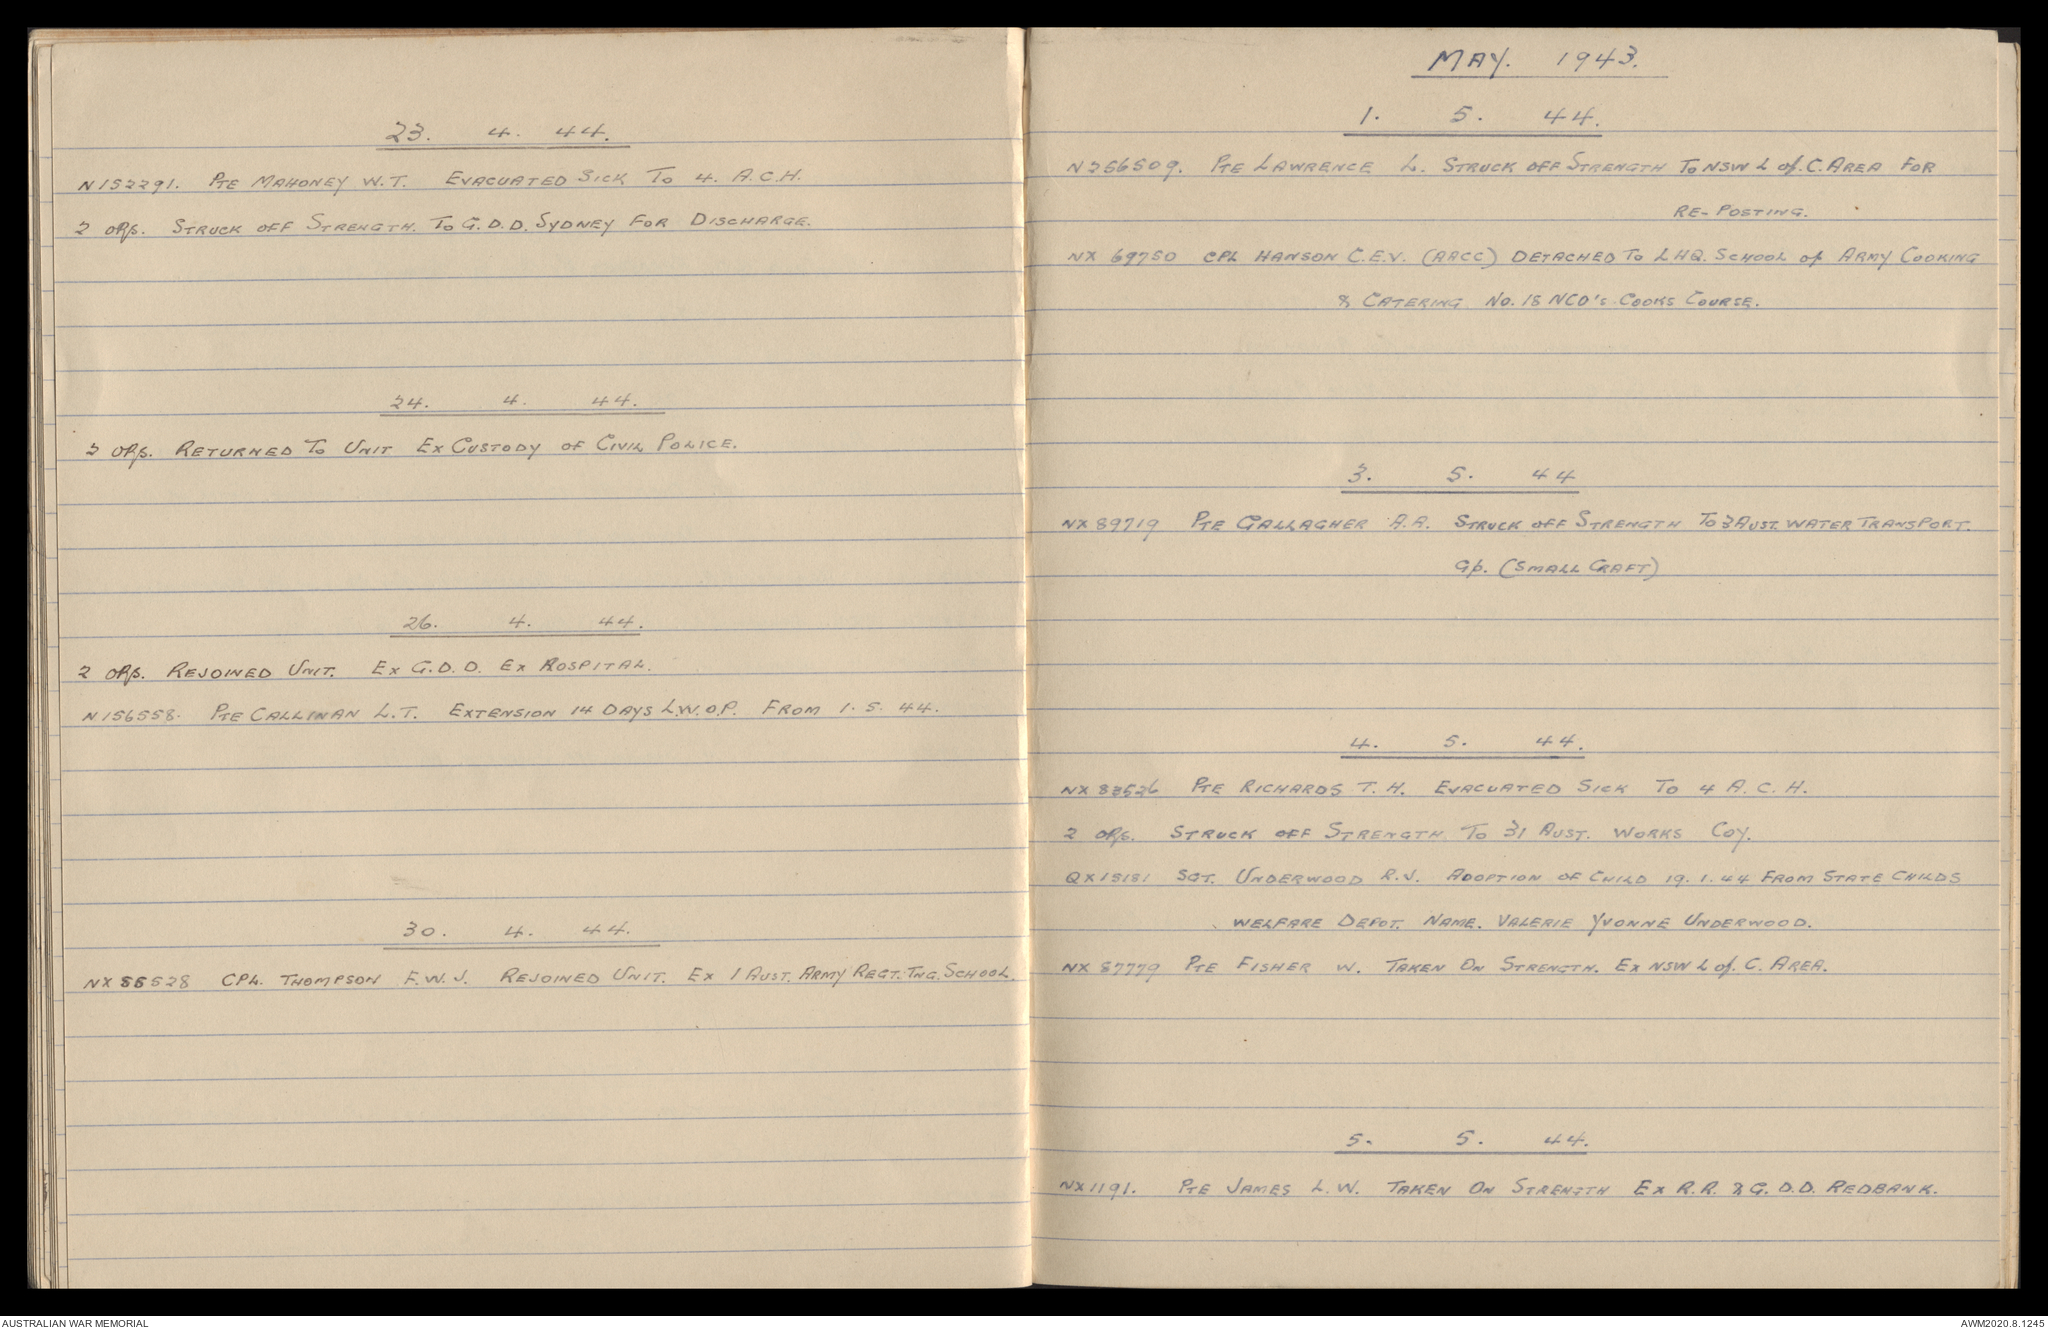 23. 4. 44.
N152291. Pte Mahoney W.T. Evacuated Sick To 4. A.C.H.
2 ORs. Struck off Strength. To G.D.D. Sydney For Discharge.
24. 4. 44.
2 ORs. Returned To Unit Ex Custody of Civil Police.
26. 4. 44.
2 ORs. Rejoined Unit. Ex G.D.D. Ex Hospital.
N156558. Pte Callinan L.T. Extension 14 Days L.W.O.P. From 1. 5. 44.
30. 4. 44.
NX 55528 Cpl. Thompson F.W.J. Rejoined Unit. Ex 1 Aust. Army Regt. Tng. School.
MAY. 1943.
1. 5. 44.
N256509. Pte Lawrence L. Struck off Strength To NSW L of C. Area For
Re-Posting.
NX 69750 Cpl Hanson C.E.V. (AACC) Detached To LHQ. School of Army Cooking
& Catering. No. 18 NCO's. Cooks Course.
3. 5. 44
NX 89719 Pte Gallagher A.A. Struck off Strength To 3 Aust. Water Transport.
Gp. (Small Craft)
4. 5. 44.
NX 83526 Pte Richards T. H. Evacuated Sick To 4 A.C.H.
2 ORs. Struck off Strength. To 31 Aust. Works Coy.
QX15181 Sgt. Underwood R.J. Adoption of Child 19.1.44 From State Childs
Welfare Depot. Name. Valerie Yvonne Underwood.
NX 87779 Pte Fisher W. Taken On Strength. Ex NSW L of. C. Area.
5. 5. 44.
NX1191. Pte James L.W. Taken On Strength Ex R.R. & G.D.D. Redbank.
AUSTRALIAN WAR MEMORIAL
AWM2020.8.1245